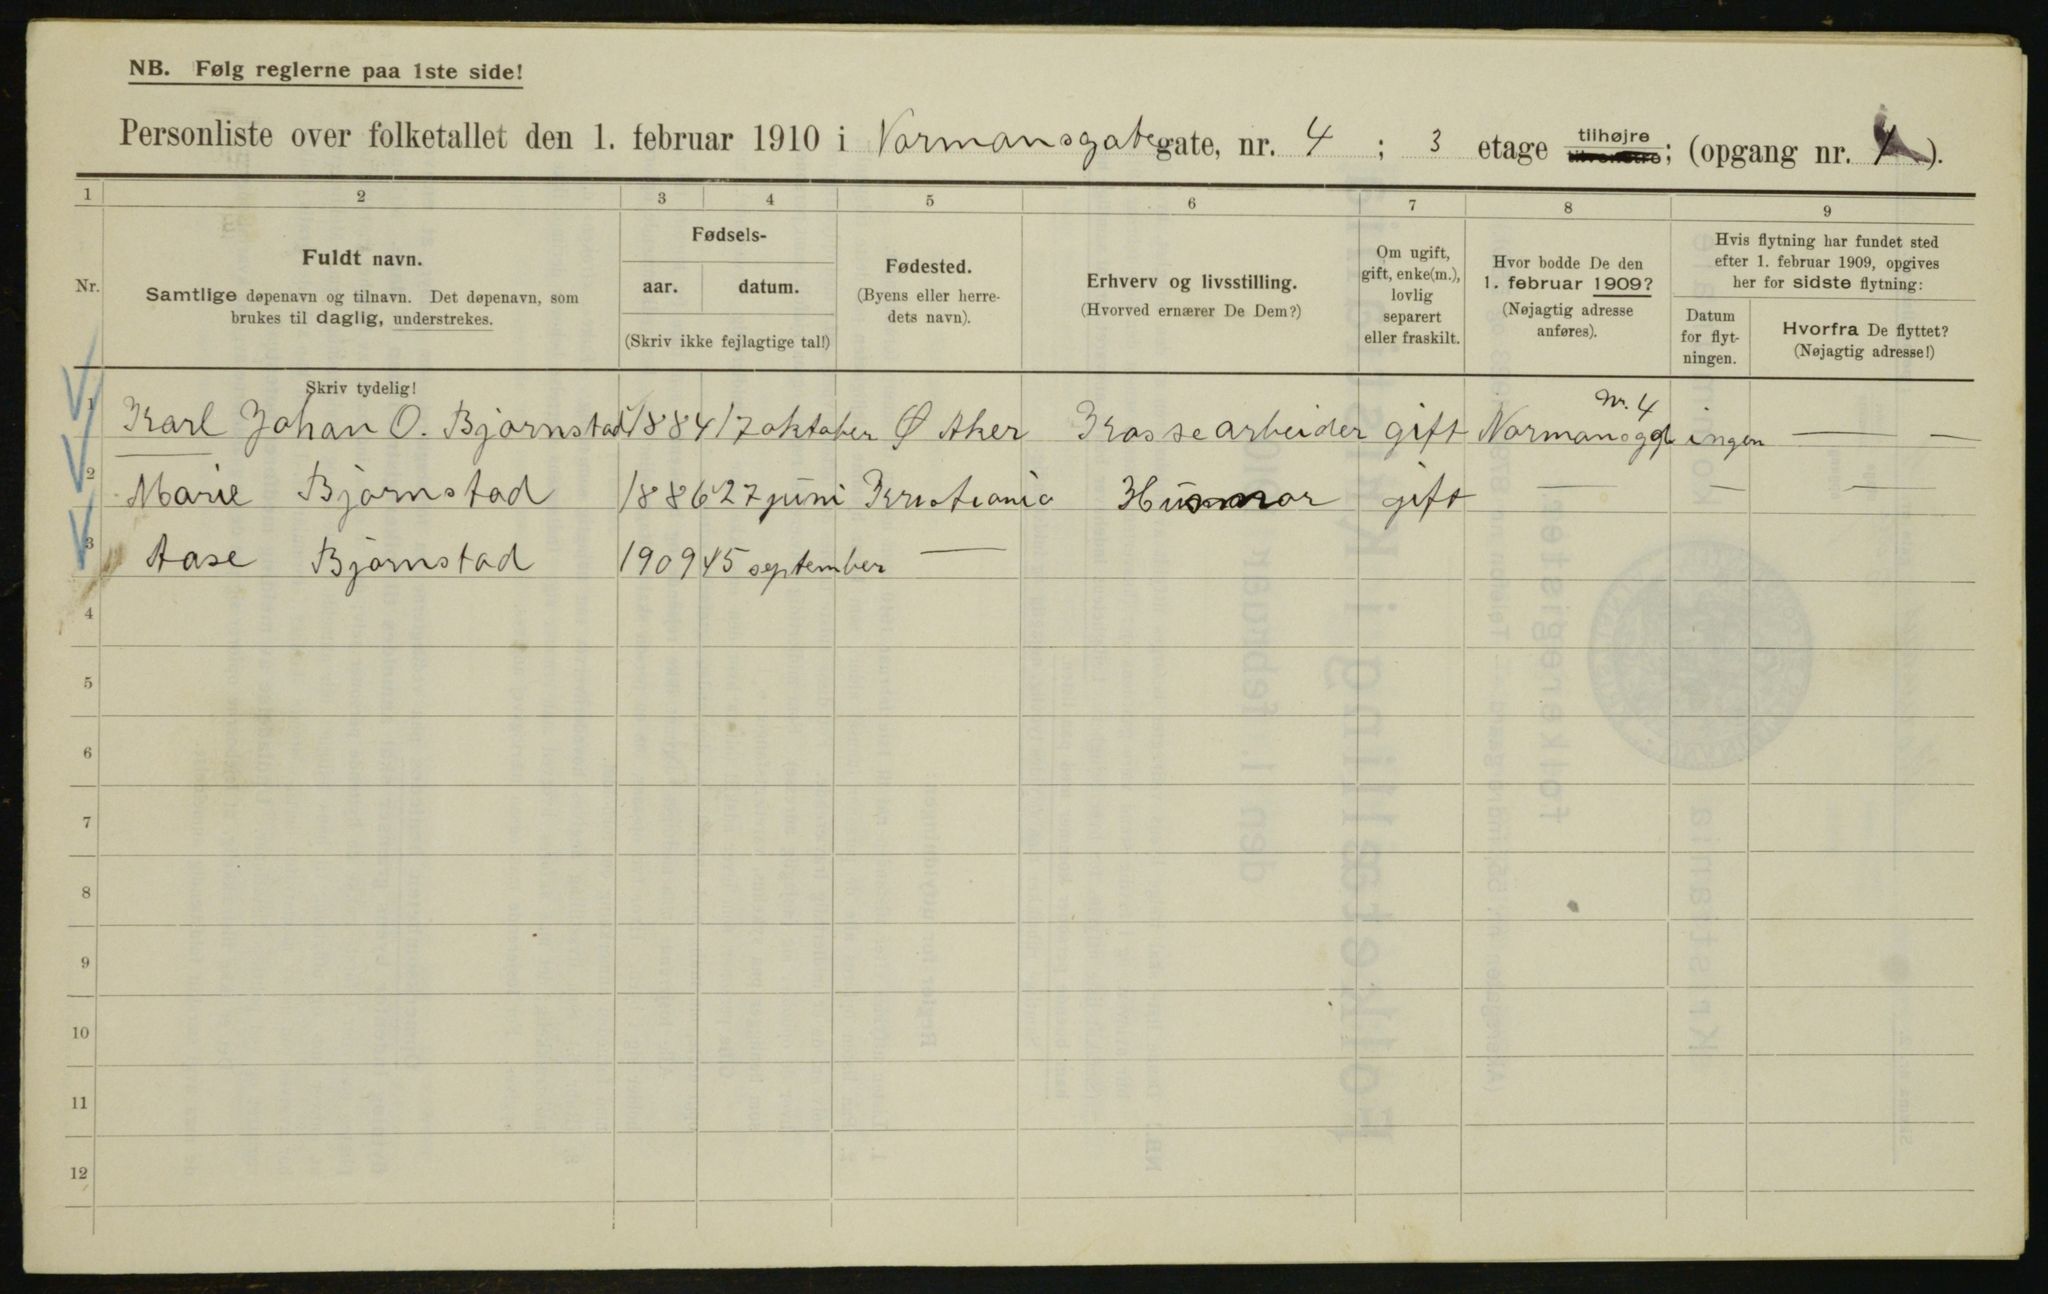 NB. Følg reglerne paa 1ste side!
Personliste over folketallet den 1. februar 1910 i Normansgate gate, nr. 4 ; 3 etage tilhøjre tilvenstre; (opgang nr. 1 ).
1 2 3 4 5 6 7 8 9
Nr.
Fuldt navn.
Samtlige døpenavn og tilnavn. Det døpenavn, som
brukes til daglig, understrekes.
Skriv tydelig!
Fødsels-
aar. datum.
(Skriv ikke fejlagtige tal!)
Fødested.
(Byens eller herre-
dets navn).
Erhverv og livsstilling.
(Hvorved ernærer De Dem?)
Om ugift,
gift, enke(m.),
lovlig
separert
eller fraskilt.
Hvor bodde De den
1. februar 1909?
(Nøjagtig adresse
anføres).
Hvis flytning har fundet sted
efter 1. februar 1909, opgives
her for sidste flytning:
Datum
for flyt-
ningen.
Hvorfra De flyttet?
(Nøjagtig adresse!)
1 Karl Johan O. Bjørnstad 1884 17 oktober Ø Aker Kassearbeider gift Normansgd nr. 4 ingen — —
2 Marie Bjornstad 1886 27 juni Kristiania Husmor gift — — —
3 Aase Bjornstad 1909 15 september —
4
5
6
7
8
9
10
11
12